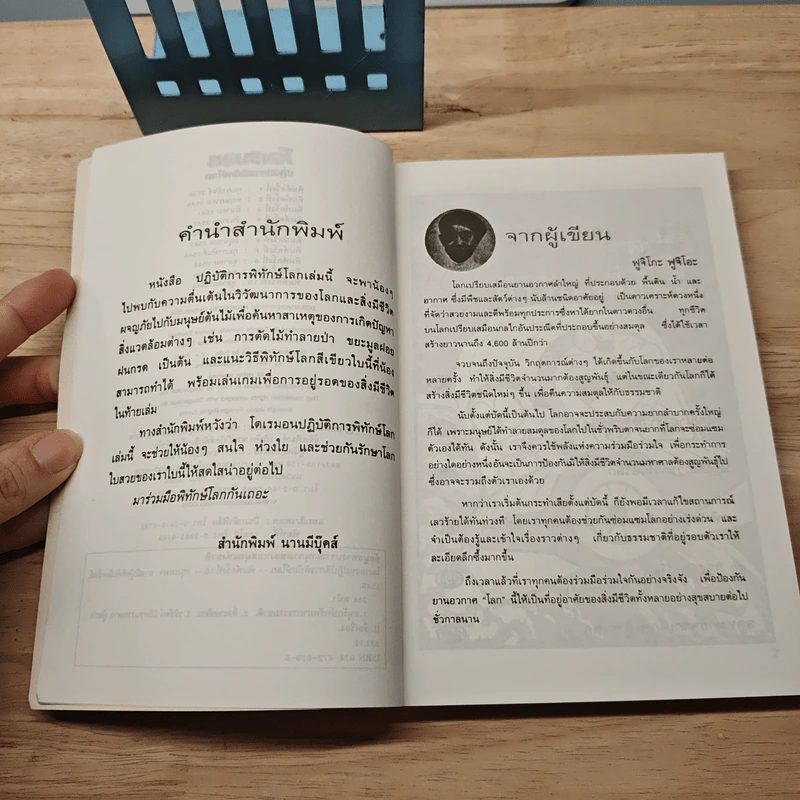 คำนำสำนักพิมพ์
หนังสือ ปฏิบัติการพิทักษ์โลกเล่มนี้ จะพาน้องๆ
ไปพบกับความตื่นเต้นในวิวัฒนาการของโลกและสิ่งมีชีวิต
ผจญภัยไปกับมนุษย์ต้นไม้เพื่อค้นหาสาเหตุของการเกิดปัญหา
สิ่งแวดล้อมต่างๆ เช่น การตัดไม้ทำลายป่า ขยะมูลฝอย
ฝนกรด เป็นต้น และแนะวิธีพิทักษ์โลกสีเขียวใบนี้ที่น้อง
สามารถทำได้ พร้อมเล่นเกมเพื่อการอยู่รอดของสิ่งมีชีวิต
ในท้ายเล่ม
ทางสำนักพิมพ์หวังว่า โดเรมอนปฏิบัติการพิทักษ์โลก
เล่มนี้ จะช่วยให้น้องๆ สนใจ ห่วงใย และช่วยกันรักษาโลก
ใบสวยของเราใบนี้ให้สดใสน่าอยู่ต่อไป
มาร่วมมือพิทักษ์โลกกันเถอะ
สำนักพิมพ์ นานมีบุ๊คส์
จากผู้เขียน
ฟูจิโกะ ฟูจิโอะ
โลกเปรียบเสมือนยานอวกาศลำใหญ่ ที่ประกอบด้วย พื้นดิน น้ำ และ
อากาศ ซึ่งมีพืชและสัตว์ต่างๆ นับล้านชนิดอาศัยอยู่ เป็นดาวเคราะห์ดวงหนึ่ง
ที่จัดว่าสวยงามและดีพร้อมทุกประการซึ่งหาได้ยากในดาวดวงอื่น ทุกชีวิต
บนโลกเปรียบเสมือนกลไกอันประณีตที่ประกอบขึ้นอย่างสมดุล ซึ่งได้ใช้เวลา
สร้างยาวนานถึง 4,600 ล้านปีกว่า
จวบจนถึงปัจจุบัน วิกฤตการณ์ต่างๆ ได้เกิดขึ้นกับโลกของเราหลายต่อ
หลายครั้ง ทำให้สิ่งมีชีวิตจำนวนมากต้องสูญพันธุ์ แต่ในขณะเดียวกันโลกก็ได้
สร้างสิ่งมีชีวิตชนิดใหม่ๆ ขึ้น เพื่อคืนความสมดุลให้กับธรรมชาติ
นับตั้งแต่บัดนี้เป็นต้นไป โลกอาจจะประสบกับความยากลำบากครั้งใหญ่
ก็ได้ เพราะมนุษย์ได้ทำลายสมดุลของโลกไปในชั่วพริบตาจนยากที่โลกจะซ่อมแซม
ตัวเองได้ทัน ดังนั้น เราจึงควรใช้พลังแห่งความร่วมมือร่วมใจ เพื่อกระทำการ
อย่างใดอย่างหนึ่งอันจะเป็นการป้องกันมิให้สิ่งมีชีวิตจำนวนมหาศาลต้องสูญพันธุ์ไป
ซึ่งอาจจะรวมถึงตัวเราเองด้วย
หากว่าเราเริ่มต้นกระทำเสียตั้งแต่บัดนี้ ก็ยังพอมีเวลาแก้ไขสถานการณ์
เลวร้ายได้ทันท่วงที โดยเราทุกคนต้องช่วยกันซ่อมแซมโลกอย่างเร่งด่วน และ
จำเป็นต้องรู้และเข้าใจเรื่องราวต่างๆ เกี่ยวกับธรรมชาติที่อยู่รอบตัวเราให้
ละเอียดลึกซึ้งมากขึ้น
ถึงเวลาแล้วที่เราทุกคนต้องร่วมมือร่วมใจกันอย่างจริงจัง เพื่อป้องกัน
ยานอวกาศ "โลก" นี้ให้เป็นที่อยู่อาศัยของสิ่งมีชีวิตทั้งหลายอย่างสุขสบายต่อไป
ชั่วกาลนาน